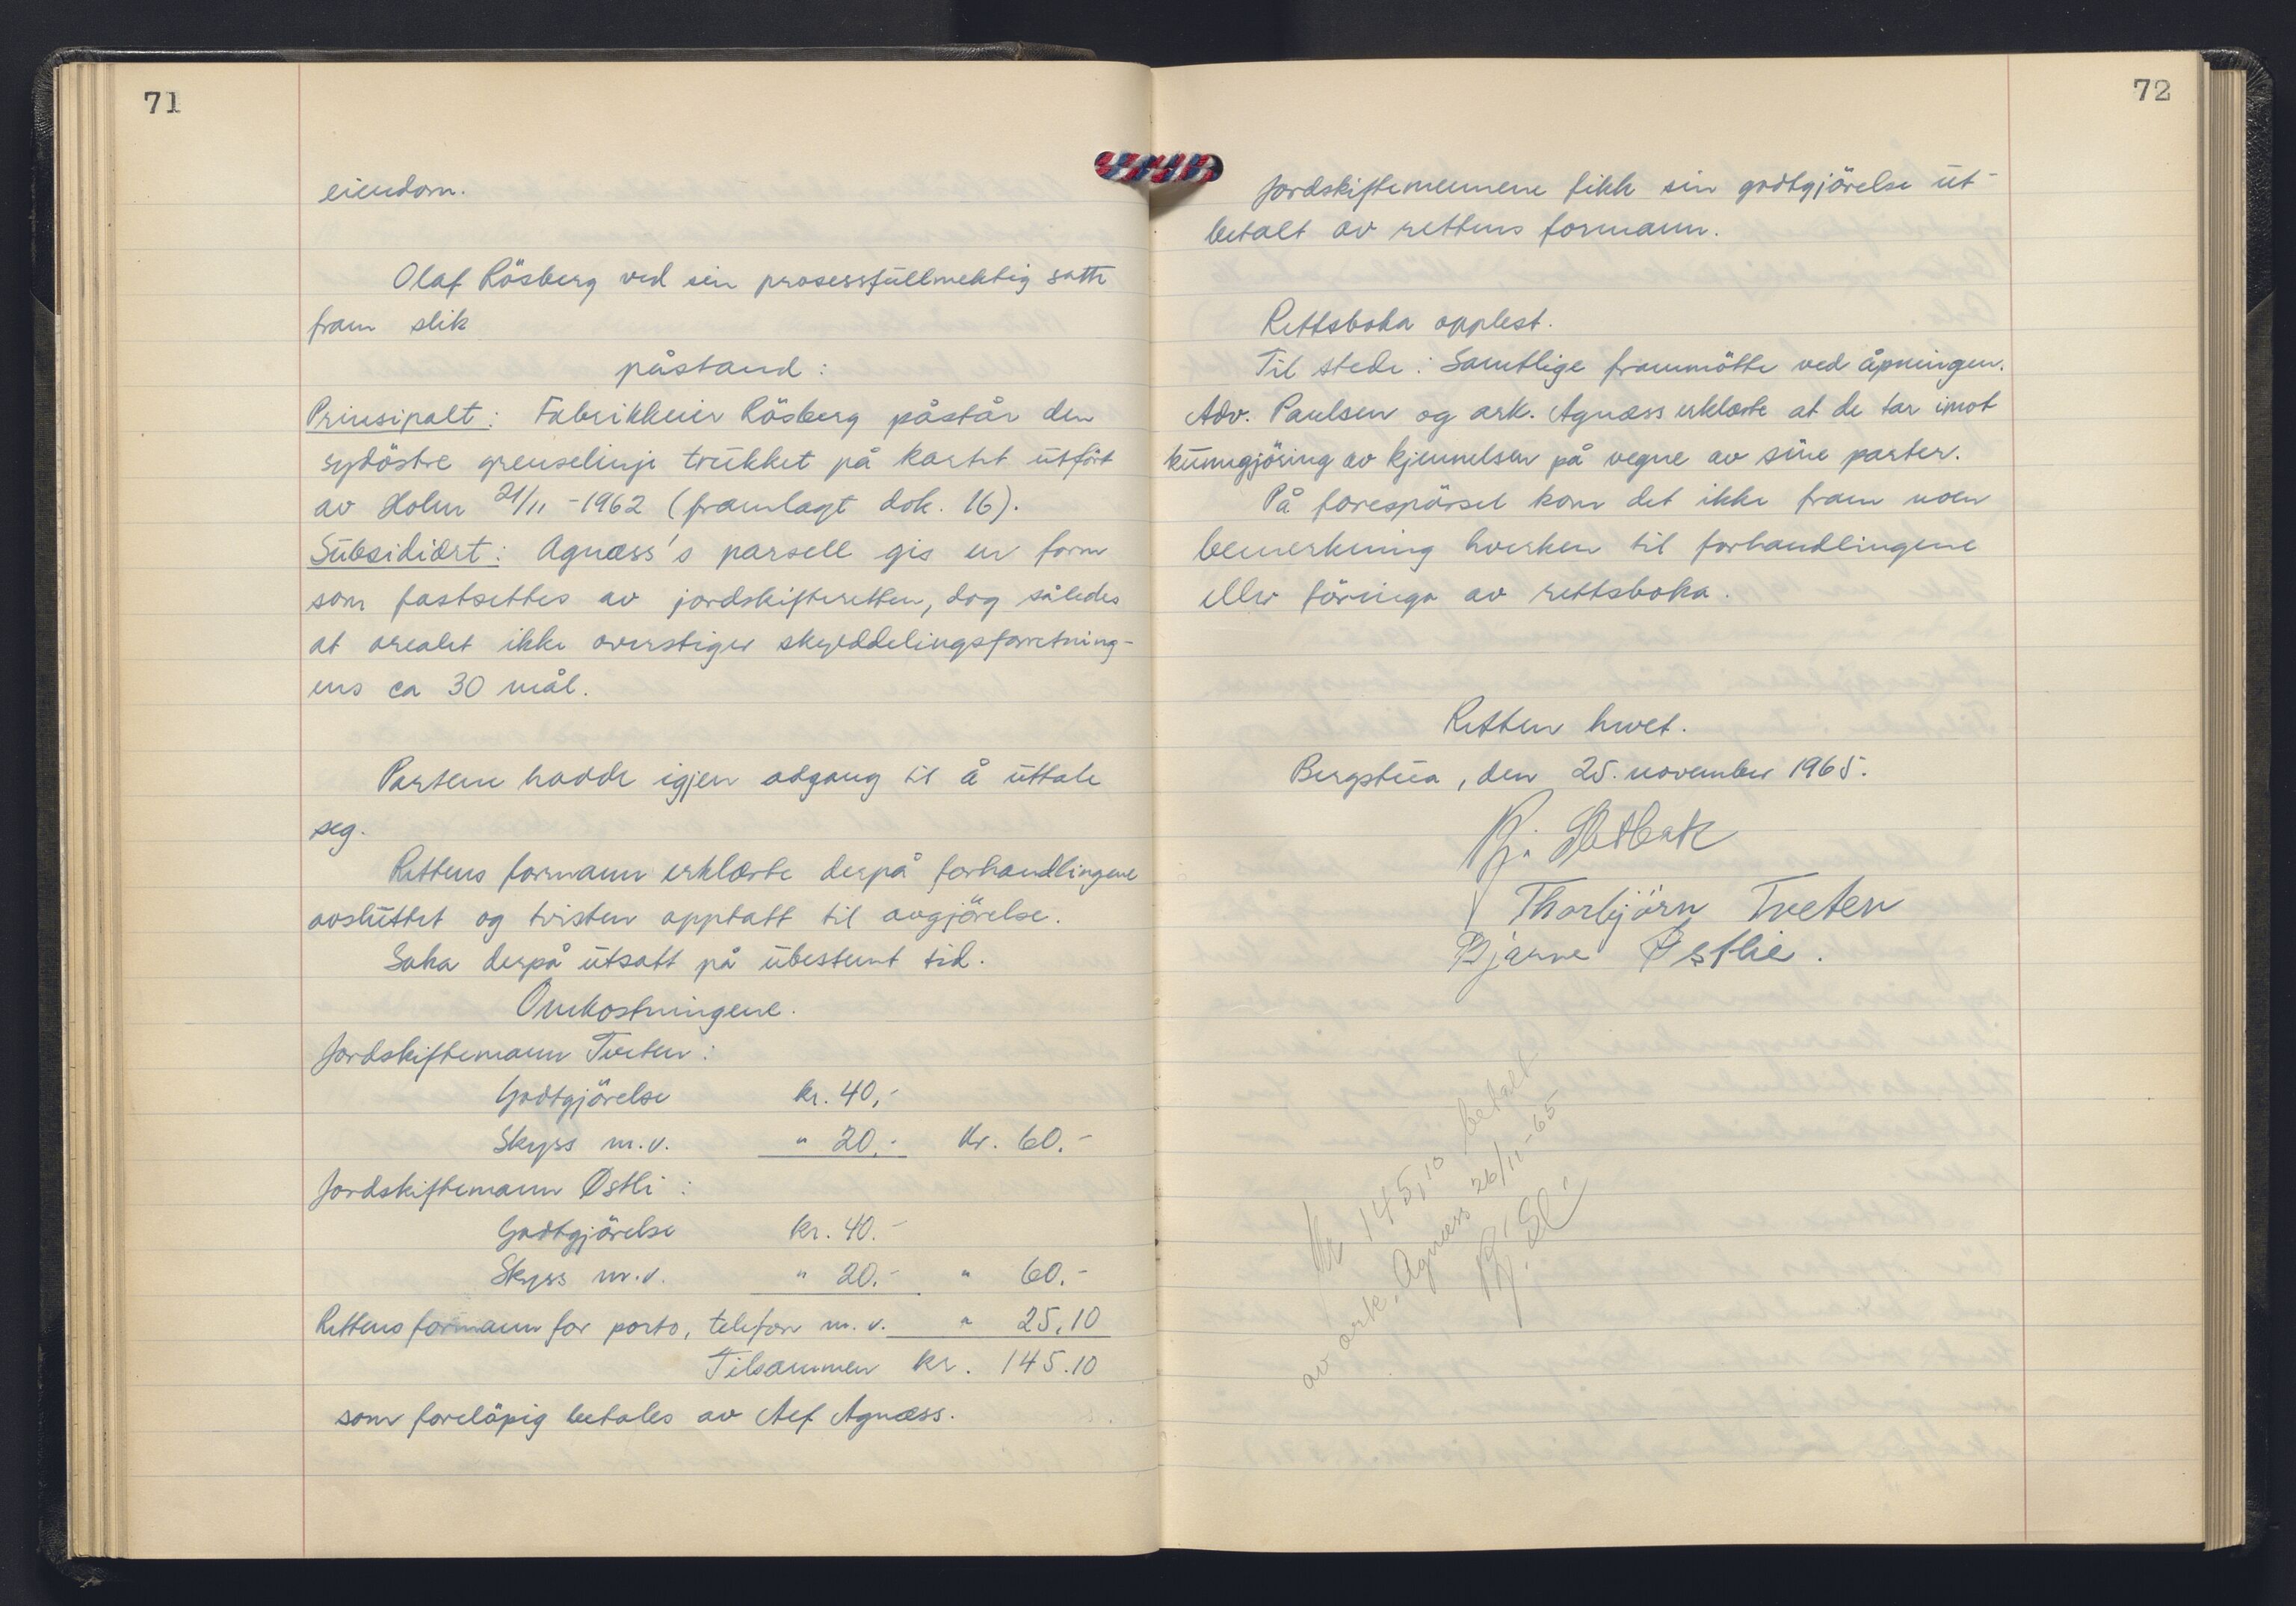 71
eiendom.
Olaf Rösberg ved sin prosessfullmektig satte
fram slik
påstand:
Prinsipalt: Fabrikkeier Rösberg påstår den
sydöstre grenselinje trukket på kartet utfört
av Holm 21/11-1962 (framlagt dok. 16).
Subsidiært: Agnæss's parsell gis en form
som fastsettes av jordskifteretten, dog således
at arealet ikke overstiger skylddelingsforretning-
ens ca 30 mål.
Partene hadde igjen adgang til å uttale
seg.
Rettens formann erklærte derpå forhandlingene
avsluttet og tvisten opptatt til avgjörelse.
Saka derpå utsatt på ubestemt tid.
Omkostningene.
Jordskiftemann Tveten:
Godtgjörelse kr. 40,-
Skyss m.v. " 20.- Kr. 60.-
Jordskiftemann Østli:
Godtgjörelse kr. 40.-
Skyss m.v. " 20.- " 60.-
Rettens formann for porto, telefon m.v. " 25,10
Tilsammen kr. 145.10
som foreløpig betales av Alf Agnæss.
72
Jordskiftemennene fikk sin godtgjörelse ut-
betalt av rettens formann.
Rettsboka opplest.
Til stede: Samtlige frammötte ved åpningen.
Adv. Paulsen og ark. Agnæss erklærte at de tar imot
kunngjöring av kjennelsen på vegne av sine parter.
På forespörsel kom det ikke fram noen
bemerkning hverken til forhandlingene
eller föringa av rettsboka.
Retten hevet.
Bergstua, den 25. november 1965.
Thorbjörn Tveten
Bjarne Østlie.
Kr 145,10 betalt
av ark. Agnæss 26/11-65